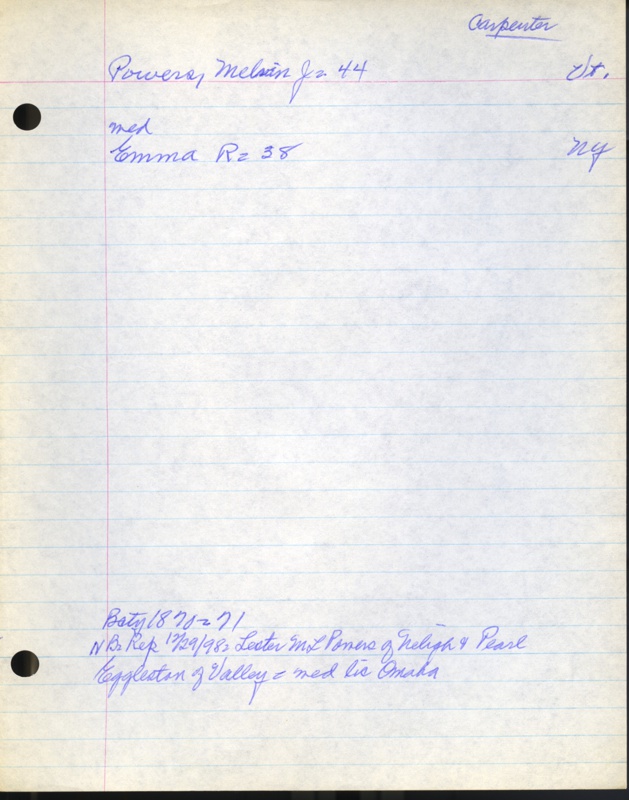 Carpenter
Powers, Melvin J = 44 Vt.
med
Emma R = 38 NY
Baty 1870 = 71
N B = Rep 12/29/98 = Lester M L Powers of Neligh & Pearl
Eggleston of Valley = med lic Omaha